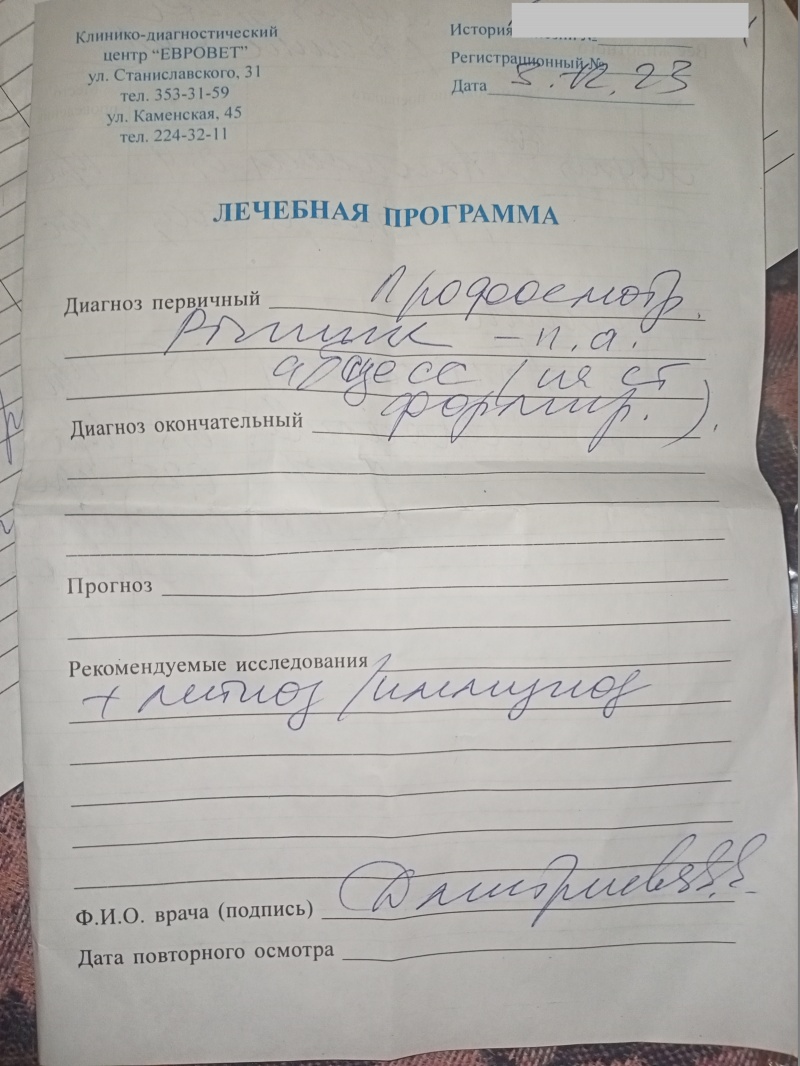 Клинико-диагностический
центр “ЕВРОВЕТ”
ул. Станиславского, 31
тел. 353-31-59
ул. Каменская, 45
тел. 224-32-11
История
Регистрационный №
Дата 5.12.23
ЛЕЧЕБНАЯ ПРОГРАММА
Диагноз первичный Профосмотр.
– п.а.
абсцесс (на ст
формир.).
Диагноз окончательный
Прогноз
Рекомендуемые исследования
+
Ф.И.О. врача (подпись)
Дата повторного осмотра